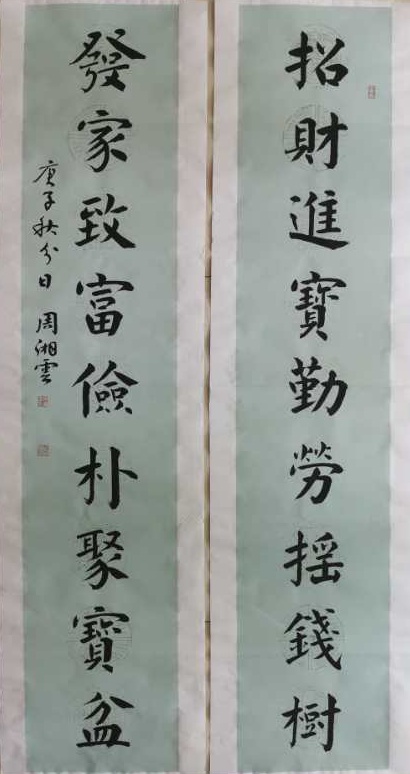 招財進寶勤勞摇錢樹
發家致富儉朴聚寶盆
庚子秋分日 周湘雲